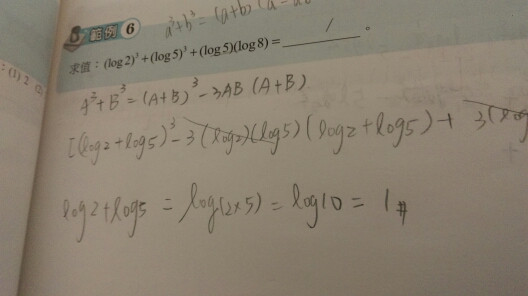 範例 6 a³+b³ = (a+b)(a
: (1) 2 (2)
求值：(log 2)³+(log 5)³+(log 5)(log 8)= 1 。
A³+B³=(A+B)³-3AB(A+B)
[(log2+log5)³-3(log2)(log5)(log2+log5)+ 3(log
log2+log5 = log(2×5) = log10 = 1 #